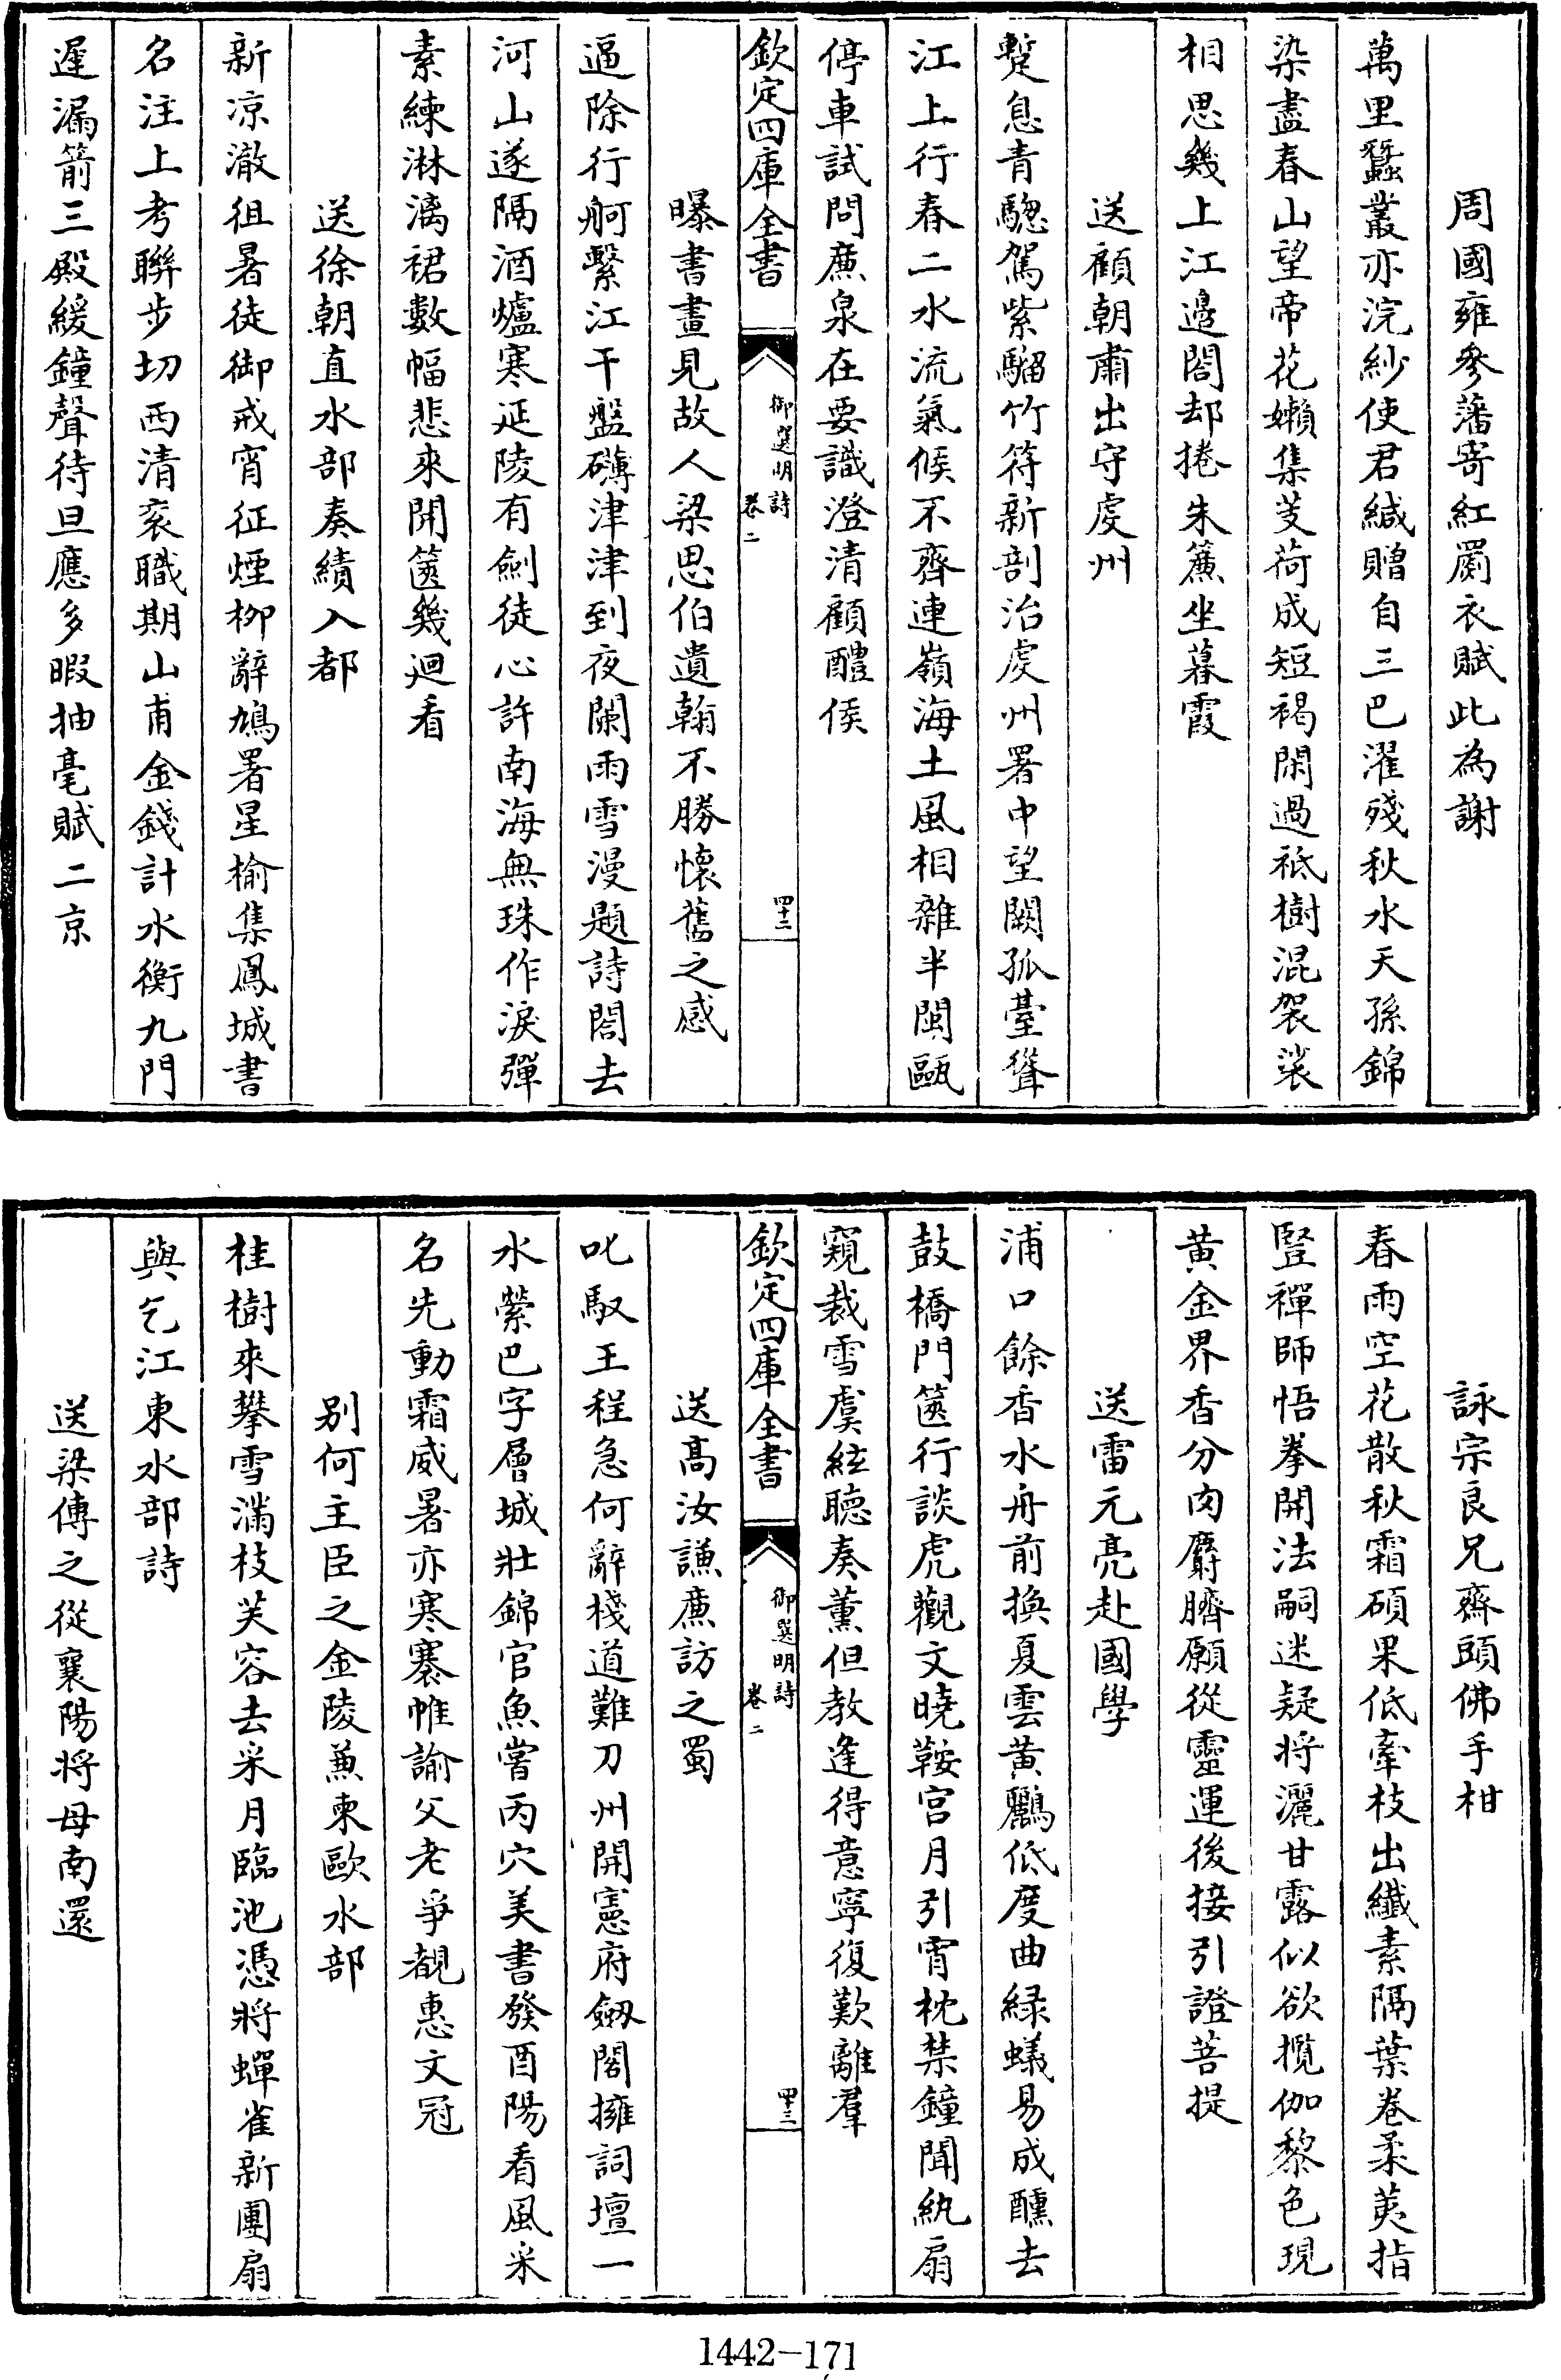 周國雍參藩寄紅罽衣賦此為謝
萬里蠶叢亦浣紗使君緘贈自三巴濯殘秋水天孫錦
染盡春山望帝花嬾集芰荷成短褐閑過祇樹混袈裟
相思幾上江邉閣却捲朱簾坐暮霞
送顧朝肅出守虔州
蹔息青驄駕紫騮竹符新剖治虔州署中望闕孤臺聳
江上行春二水流氣候不齊連嶺海土風相雜半閩甌
停車試問亷泉在要識澄清顧醴侯
欽定四庫全書
御選明詩
卷二
四十二
曝書畫見故人梁思伯遺翰不勝懷舊之感
逼除行舸繫江干盤礴津津到夜闌雨雪漫題詩閣去
河山遂隔酒爐寒延陵有劍徒心許南海無珠作淚彈
素練淋漓裙數幅悲來開篋幾迴看
送徐朝直水部奏績入都
新凉澈徂暑徒御戒宵征煙柳辭鳩署星榆集鳳城書
名注上考聯步切西清衮職期山甫金錢計水衡九門
遲漏箭三殿緩鐘聲待旦應多暇抽毫賦二京
詠宗良兄齋頭佛手柑
春雨空花散秋霜碩果低牽枝出纖素隔葉卷柔荑指
豎禪師悟拳開法嗣迷疑將灑甘露似欲攬伽黎色現
黄金界香分肉麝臍願從靈運後接引證菩提
送雷元亮赴國學
浦口餘香水舟前換夏雲黄鸝低度曲緑蟻易成醺去
鼓橋門篋行談虎觀文曉鞍宫月引宵枕禁鐘聞紈扇
窺裁雪虞絃聽奏薰但教逢得意寧復歎離羣
欽定四庫全書
御選明詩
卷二
四十三
送高汝謙亷訪之蜀
叱馭王程急何辭棧道難刀州開憲府劒閣擁詞壇一
水縈巴字層城壯錦官魚嘗丙穴美書發酉陽看風采
名先動霜威暑亦寒褰帷諭父老爭覩惠文冠
别何主臣之金陵兼柬歐水部
桂樹來攀雪滿枝芙容去采月臨池憑將蟬雀新團扇
與乞江東水部詩
送梁傳之從襄陽將母南還
1442-171